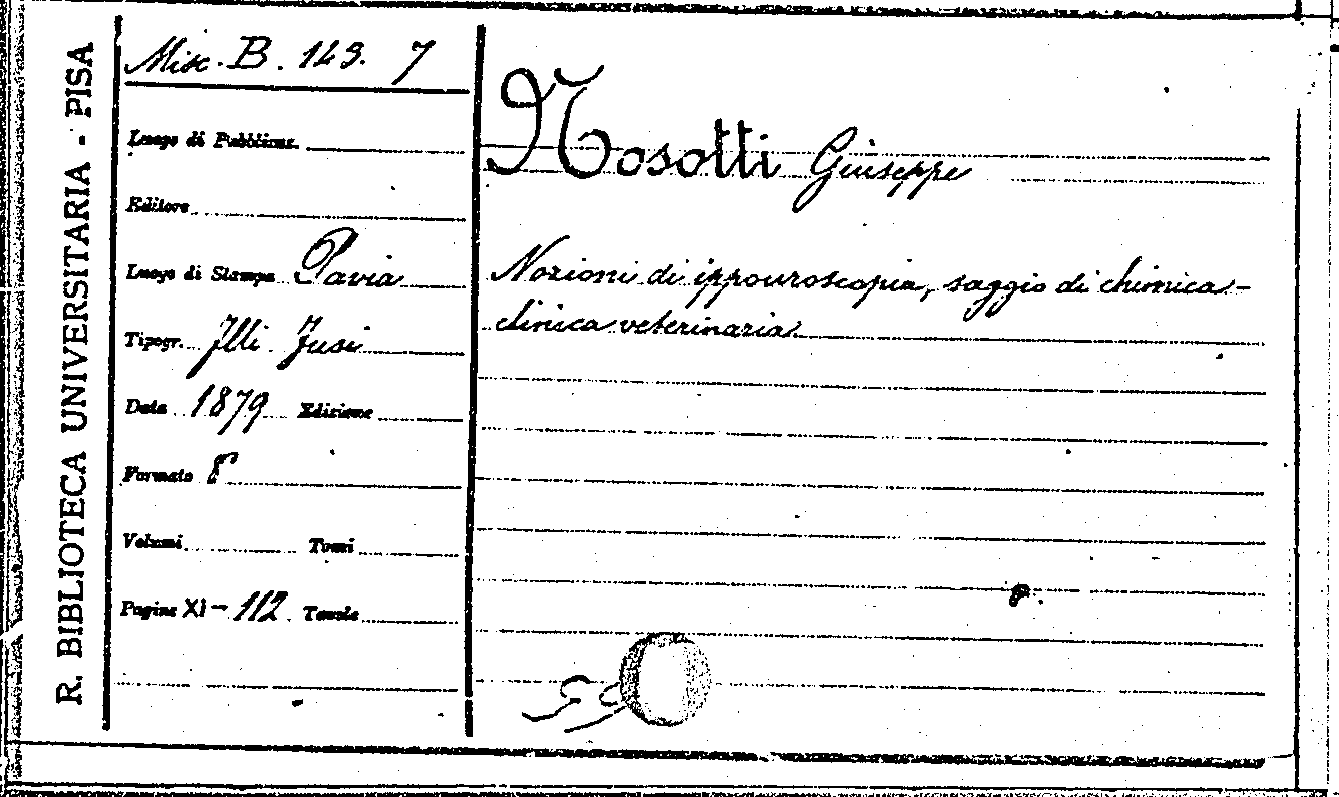 R. BIBLIOTECA UNIVERSITARIA - PISA
Misc. B. 143. 7
Luogo di Pubblicaz.
Editore
Luogo di Stampa Pavia
Tipogr. Flli Fusi
Data 1879 Edizione
Formato 8°
Volumi Tomi
Pagine XI - 112 Tavole
Nosotti Giuseppe
Nozioni di ippouroscopia, saggio di chimica-
clinica veterinaria.